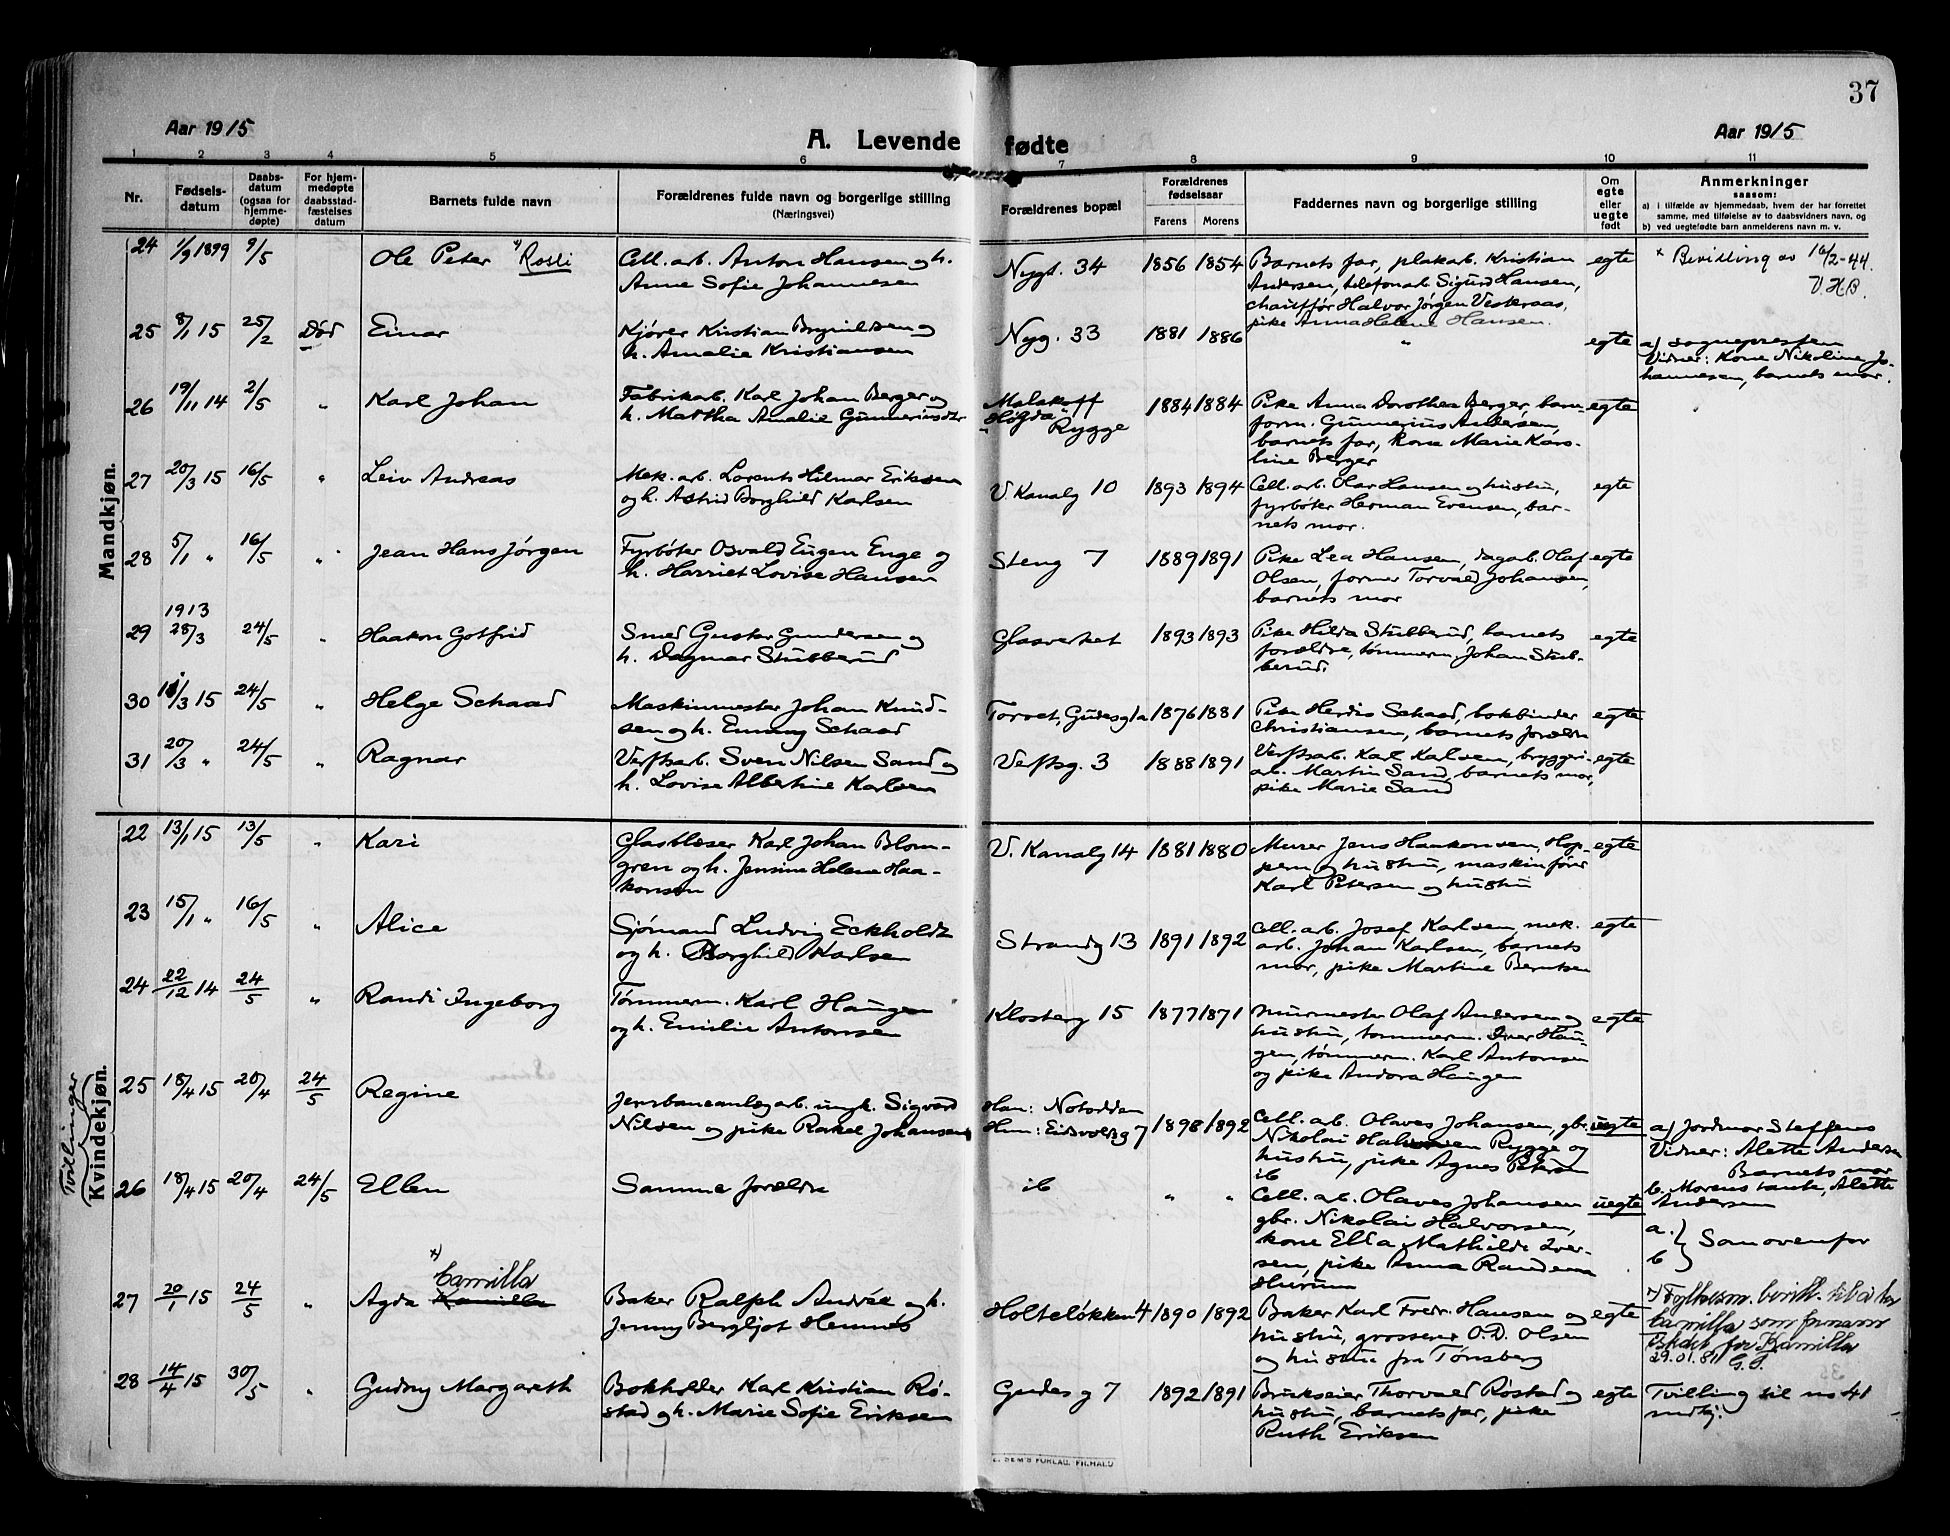 37
Aar 1915
A. Levende fødte
Aar 1915
1 2 3 4 5 6 7 8 9 10 11
Nr.
Fødsels-
datum
Daabs-
datum
(ogsaa for
hjemme-
døpte)
For hjem-
medøpte
daabsstad-
fæstelses
datum
Barnets fulde navn
Forældrenes fulde navn og borgerlige stilling
(Næringsvei)
Forældrenes bopæl
Forældrenes
fødselsaar
Farens Morens
Faddernes navn og borgerlige stilling
Om
egte
eller
uegte
født
Anmerkninger
saasom:
a) i tilfælde av hjemmedaab, hvem der har forrettet
samme, med tilføielse av to daabsvidners navn, og
b) ved uegtefødte barn anmelderens navn m. v.
Mandkjøn.
24 1/9 1899 9/5 Ole Peter x) Rosli
Cell. arb. Anton Hansen og h.
Anne Sofie Johannesen
Nygt. 34 1856 1854
Barnets far, plakab. Kristian
Andersen, telefonab. Sigurd Hansen,
chauffør Halvor Jørgen Veskraas,
pike Anna Helene Hansen.
egte
x Bevilling av 16/2-44.
V.H.B.
25 8/1 15 25/2 Død Einar
Kjører Kristian Brynildsen og
h. Amalie Kristiansen
Nyg. 33 1881 1886 " egte
a) sognepresten
Vidner: Kone Nikoline Jo-
hannesen, barnets mor.
26 19/11 14 2/5 " Karl Johan
Fabrikab. Karl Johan Berger og
h. Martha Amalie Gunneriusdtr
Malakoff
"Høgda"
Rygge
1884 1884
Pike Anna Dorothea Berger,
form. Gunnerius Andersen,
barnets far, kone Marie Karo-
line Berger
egte
27 20/3 15 16/5 " Leiv Andreas
Mek. arb. Lorents Hilmar Eriksen
og h. Astrid Borghild Karlsen
V. Kanalg 10 1893 1894
Cell. arb. Olav Hansen og hustru,
fyrbøter Herman Evensen, bar-
nets mor.
egte
28 5/1 " 16/5 " Jean Hans Jørgen
Fyrbøter Osvald Eugen Enge og
h. Harriet Lovise Hansen
Steng 7 1889 1891
Pike Lea Hansen, dagab. Olaf
Olsen, former Torvald Johansen,
barnets mor
egte
29 1913 28/3 24/5 " Haakon Gotfrid
Smed Gustav Gundersen og
h. Dagmar Stubberud
Glasverket 1893 1893
Pike Hilda Stubberud, barnets
forældre, tømmerm. Johan Stub-
berud.
egte
30 11/3 15 24/5 " Helge Schaad
Maskinmester Johan Knud-
sen og h. Emmy Schaad
Torvet, Gudesg 1a 1876 1881
Pike Herdis Schaad, bokbinder
Christiansen, barnets forældre
egte
31 20/3 " 24/5 " Ragnar
Verftsarb. Sven Nilsen Sand og
h. Lovise Albertine Karlsen
Verftsg. 3 1888 1891
Verftsab. Karl Karlsen, bryggeri-
ab. Martin Sand, barnets mor,
pike Marie Sand
egte
Kvindekjøn.
Tvillinger
22 13/1 15 13/5 " Kari
Glasblæser Karl Johan Blom-
gren og h. Jensine Helene Haa-
konsen
V. Kanalg 14 1881 1880
Murer Jens Haakonsen, Hop-
pern og hustru, maskinfører
Karl Petersen og hustru
egte
23 15/1 " 16/5 " Alice
Sjømand Ludvig Eckholdt
og h. Borghild Karlsen
Strandg 13 1891 1892
Cell. arb. Josef Karlsen, mek.
arb. Johan Karlsen, barnets
mor, pike Martine Berntsen
egte
24 22/12 14 24/5 " Randi Ingeborg
Tømmerm. Karl Haugen
og h. Emilie Antonsen
Klosterg 15 1877 1871
Murmester Olaf Andersen og
hustru, tømmerm. Iver Hau-
gen, tømmerm. Karl Antonsen
og pike Andora Haugen
egte
25 18/4 15 20/4 24/5 Regine
Jernbaneanlægsarb. ungk. Sigvard
Nilsen og pike Rakel Johansen
Han: Notodden
Hun: Eidsvoldsg 7
1898 1892
Cell. arb. Olaves Johansen, gbr.
Nikolai Halvorsen Rygge og
hustru, pike Agnes Peterson
ib
uegte
a) Jordmor Steffens
Vidner: Alette Andersen
Barnets mor
b. Morens tante, Alette
Andersen
26 18/4 15 20/4 24/5 Ellen
Samme forældre
ib " "
Cell. arb. Olaves Johansen
gbr. Nikolai Halvorsen,
kone Ella Mathilde Iver-
sen, pike Anna Randema
Hurum
uegte
a. } Som ovenfor
b
27 20/1 15 24/5 " Agda x) Camilla Kamilla
Baker Ralph Andrée og h.
Jenny Bergljot Hemnes
Holteløkken 4 1890 1892
Baker Karl Fredr. Hansen og
hustru, grosserer O.D. Olsen
og hustru fra Tønsberg
egte
x) Fylkesm. bevill. til å ta
Camilla som fornavn
istedet for Kamilla
29.01.81 G.J.
28 14/4 15 30/5 " Gudny Margareth
Bokholder Karl Kristian Rø-
stad og h. Marie Sofie Eriksen
Gudesg 7 1892 1891
Brukseier Thorvald Røstad og
hustru, barnets far, pike
Ruth Eriksen
egte
Tvilling til no 41
mdkj.
E. SEM'S FORLAG, FR.HALD